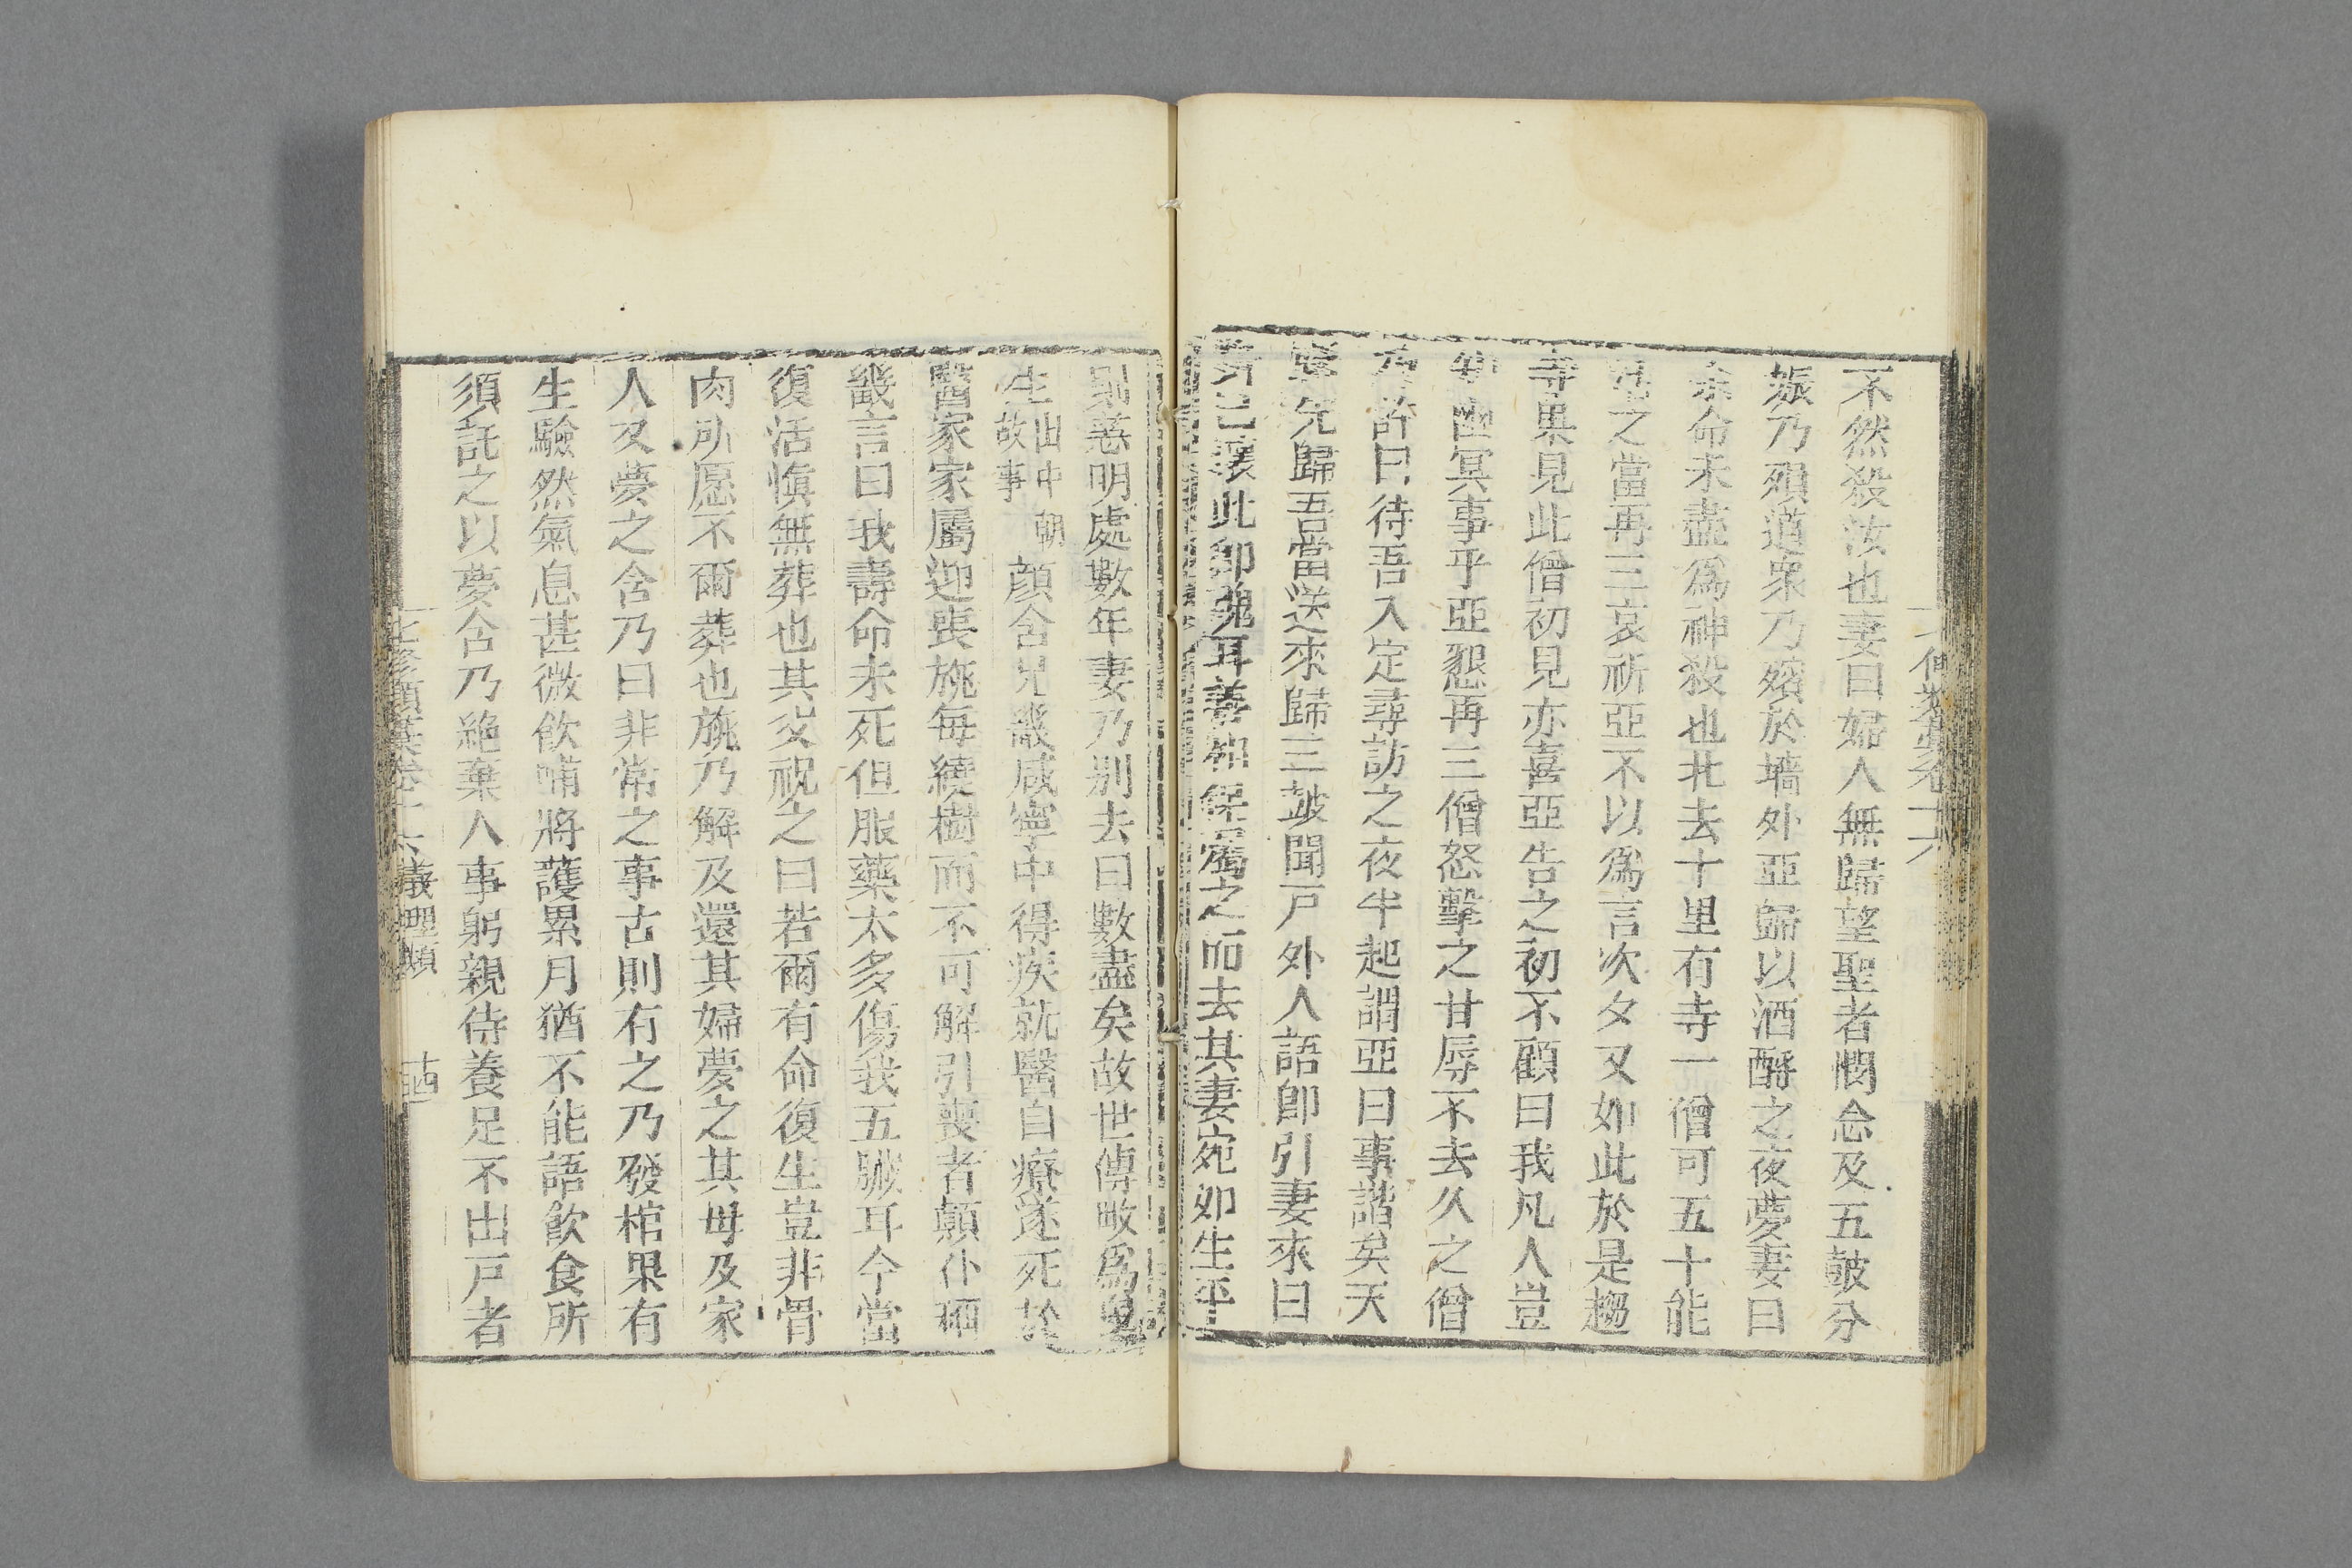 不然殺汝也妻曰婦人無歸望聖者憫念及五皷分
娠乃殞道衆乃殯於墻外亞歸以酒酹之夜夢妻曰
余命未盡爲神殺也北去十里有寺一僧可五十能
活之當再三哀祈亞不以爲言次夕又如此於是趨
寺果見此僧初見亦喜亞告之初不顧曰我凡人豈
幽冥事乎亞懇再三僧怒擊之甘辱不去久之僧
方許曰待吾入定尋訪之夜半起謂亞曰事諧矣天
先歸吾當送來歸三皷聞戸外人語即引妻來曰
身已壞此即魂耳善相保屬之而去其妻宛如生平
惡明處數年妻乃别去曰數盡矣故世傳畋爲鬼
生 出中朝故事 顏含兄畿咸寧中得疾就醫自療遂死於
醫家家屬迎喪旐每繞樹而不可解引喪者顛仆稱
畿言曰我壽命未死但服藥太多傷我五臟耳今當
復活愼無葬也其父祝之曰若爾有命復生豈非骨
肉所愿不爾葬也旐乃解及還其婦夢之其母及家
人又夢之含乃曰非常之事古則有之乃發棺果有
生驗然氣息甚微飲哺將護累月猶不能語飲食所
須託之以夢含乃絶棄人事躬親侍養足不出戸者
七修類藁卷十六 義理類 十四